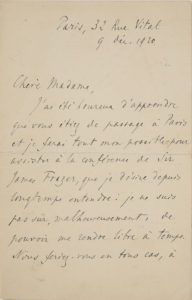 Paris, 32 Rue Vital
9 déc. 1920
Chère Madame,
J'ai été heureux d'apprendre
que vous étiez de passage à Paris
et je ferai tout mon possible pour
assister à la conférence de Sir
James Frazer, que je désire depuis
longtemps entendre : je ne suis
pas sûr, malheureusement, de
pouvoir me rendre libre à temps.
Nous ferez-vous en tous cas, à